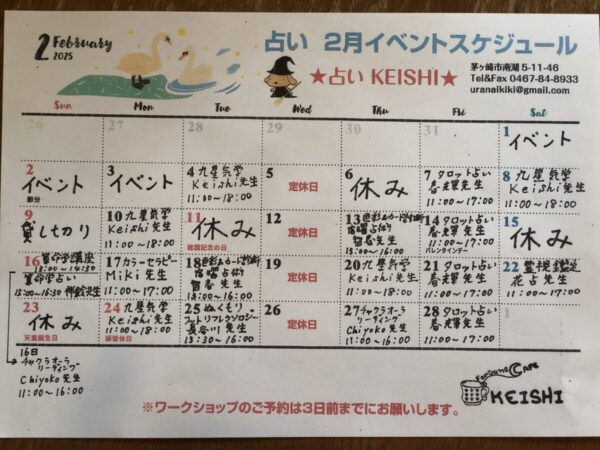 2 February
2025
占い 2月イベントスケジュール
★占い KEISHI★
茅ヶ崎市南湖 5-11-46
Tel&Fax 0467-84-8933
uranaikiki@gmail.com
Sun Mon Tue Wed Thu Fri Sat
26 27 28 29 30 31
1
イベント
2
イベント
節分
3
イベント
4 九星気学
Keishi先生
11:00〜18:00
5
定休日
6
休み
7 タロット占い
春澤先生
11:00〜17:00
8 九星気学
Keishi先生
11:00〜18:00
9
貸し切り
10 九星気学
Keishi先生
11:00〜18:00
11
休み
建国記念の日
12
定休日
13 色彩&カード診断
宿曜占い
智春先生
11:00〜16:00
14 タロット占い
春澤先生
11:00〜17:00
バレンタインデー
15
休み
16 算命学講座
13:00〜14:30
算命学占い
15:00〜16:30
先生
17 カラーセラピー
Miki先生
11:00〜17:00
18 色彩&カード診断
宿曜占い
智春先生
13:00〜16:00
19
定休日
20 九星気学
Keishi先生
11:00〜18:00
21 タロット占い
春澤先生
11:00〜17:00
22 霊視鑑定
花占先生
11:00〜17:00
23
休み
天皇誕生日
24 九星気学
Keishi先生
11:00〜18:00
振替休日
25 ぬくもり
フットリフレクソロジー
長谷川先生
13:30〜16:30
26
定休日
27 チャクラオーラ
リーディング
Chiyoko先生
11:00〜16:00
28 タロット占い
春澤先生
11:00〜17:00
1
16日
チャクラオーラ
リーディング
Chiyoko先生
11:00〜16:00
CAFE
KEISHI
※ワークショップのご予約は3日前までにお願いします。